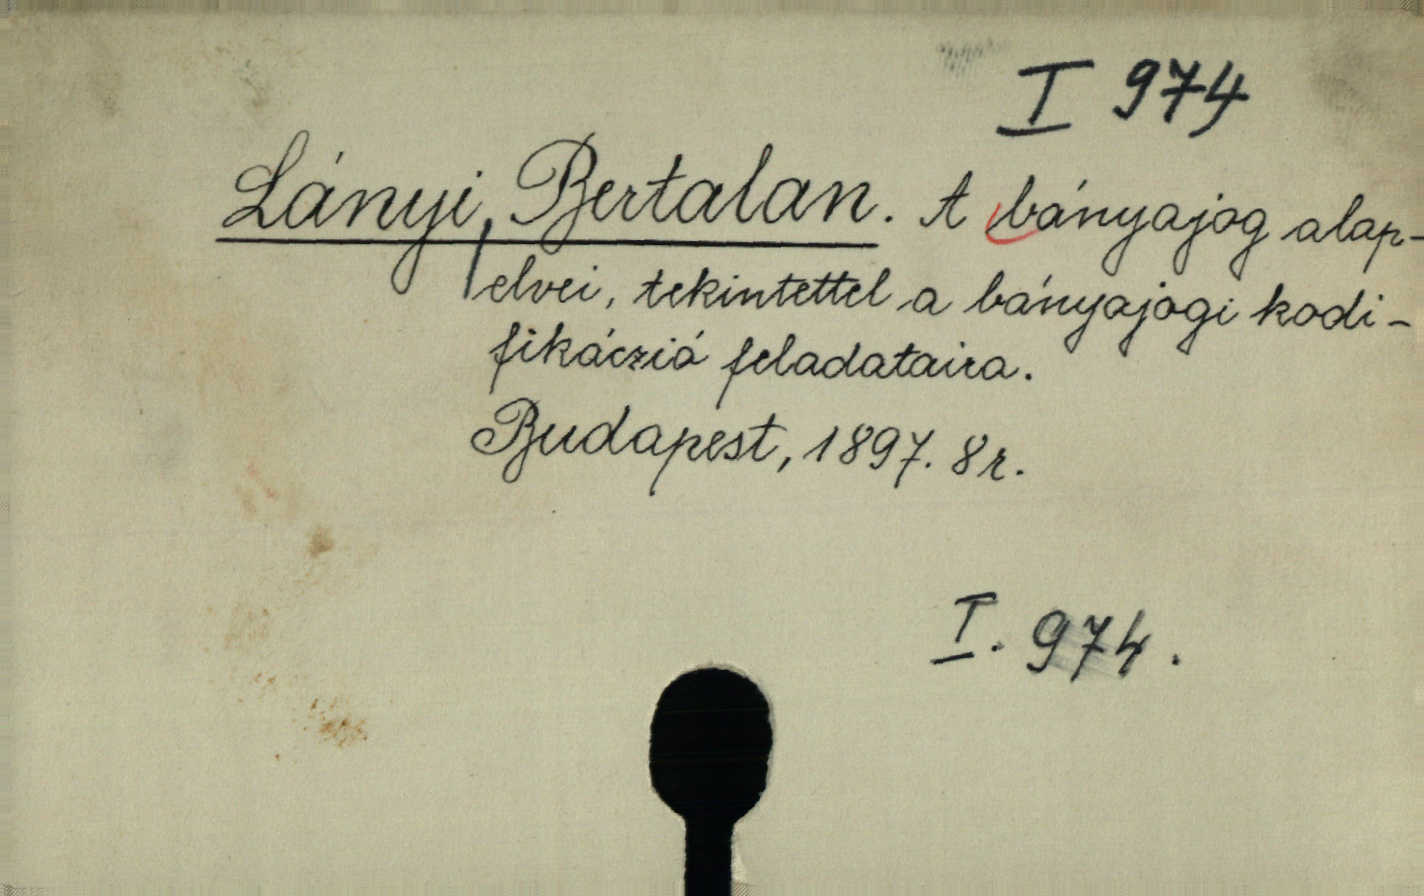 I 974
Lányi, Bertalan. A bányajog alap-
elvei, tekintettel a bányajogi kodi-
fikáczió feladataira.
Budapest, 1897. 8r.
I. 974.